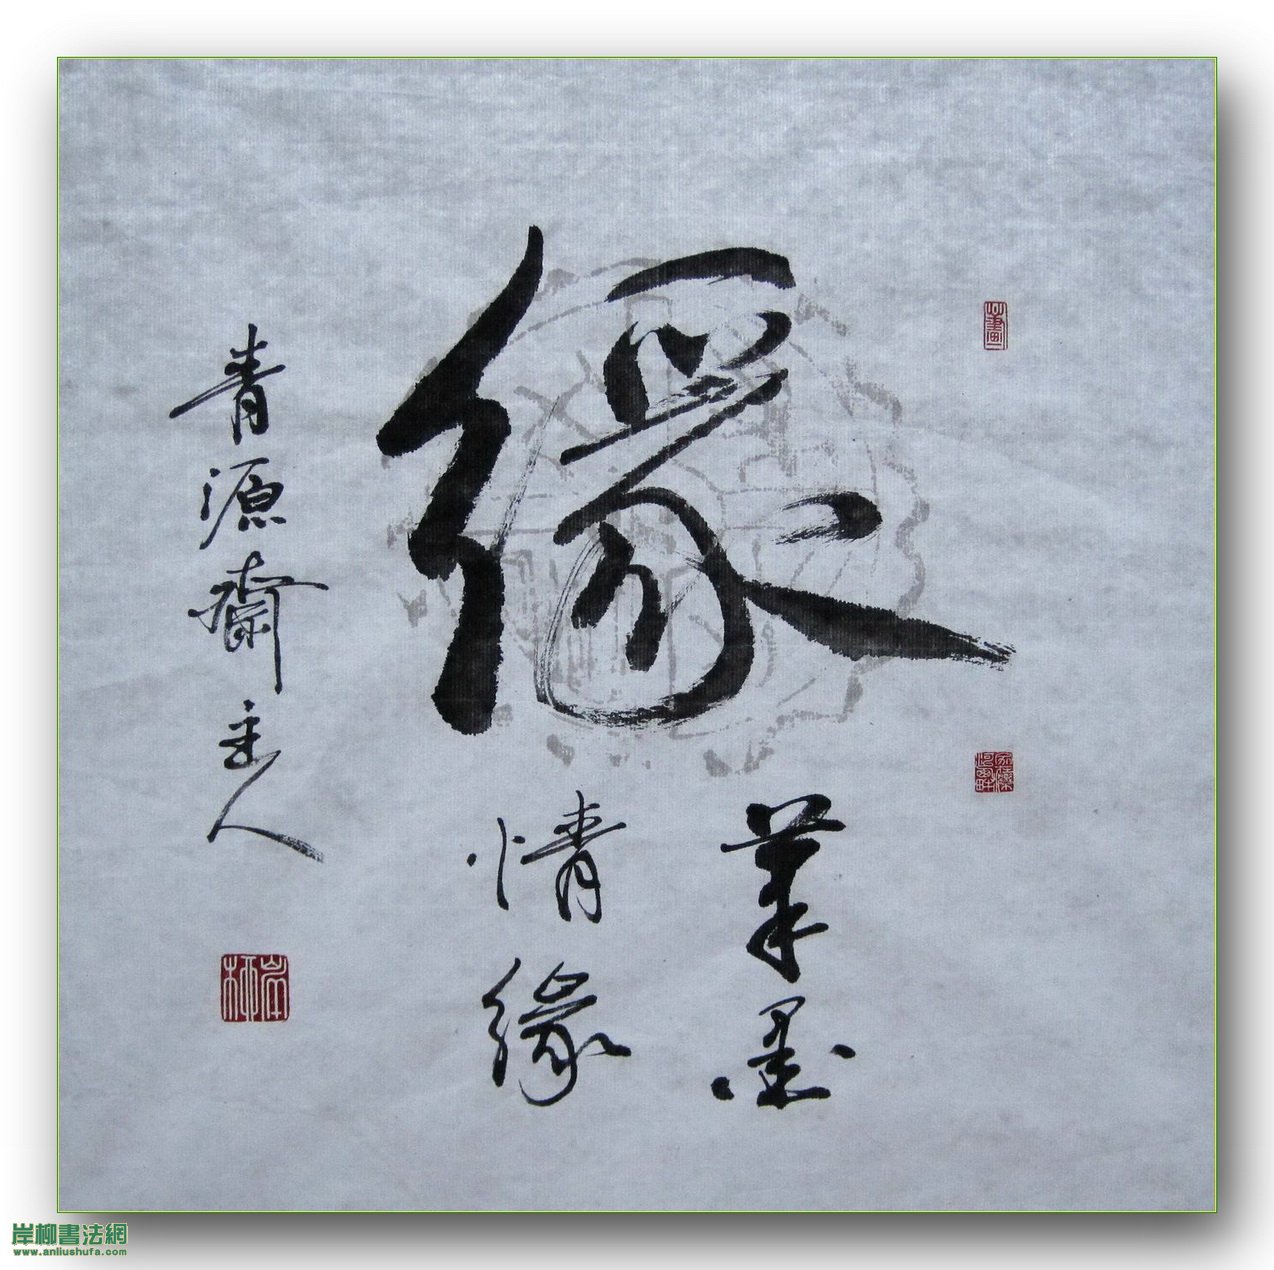 緣
筆墨
情緣
青源齋主人
岸柳
岸柳書法網
www.anliushufa.com